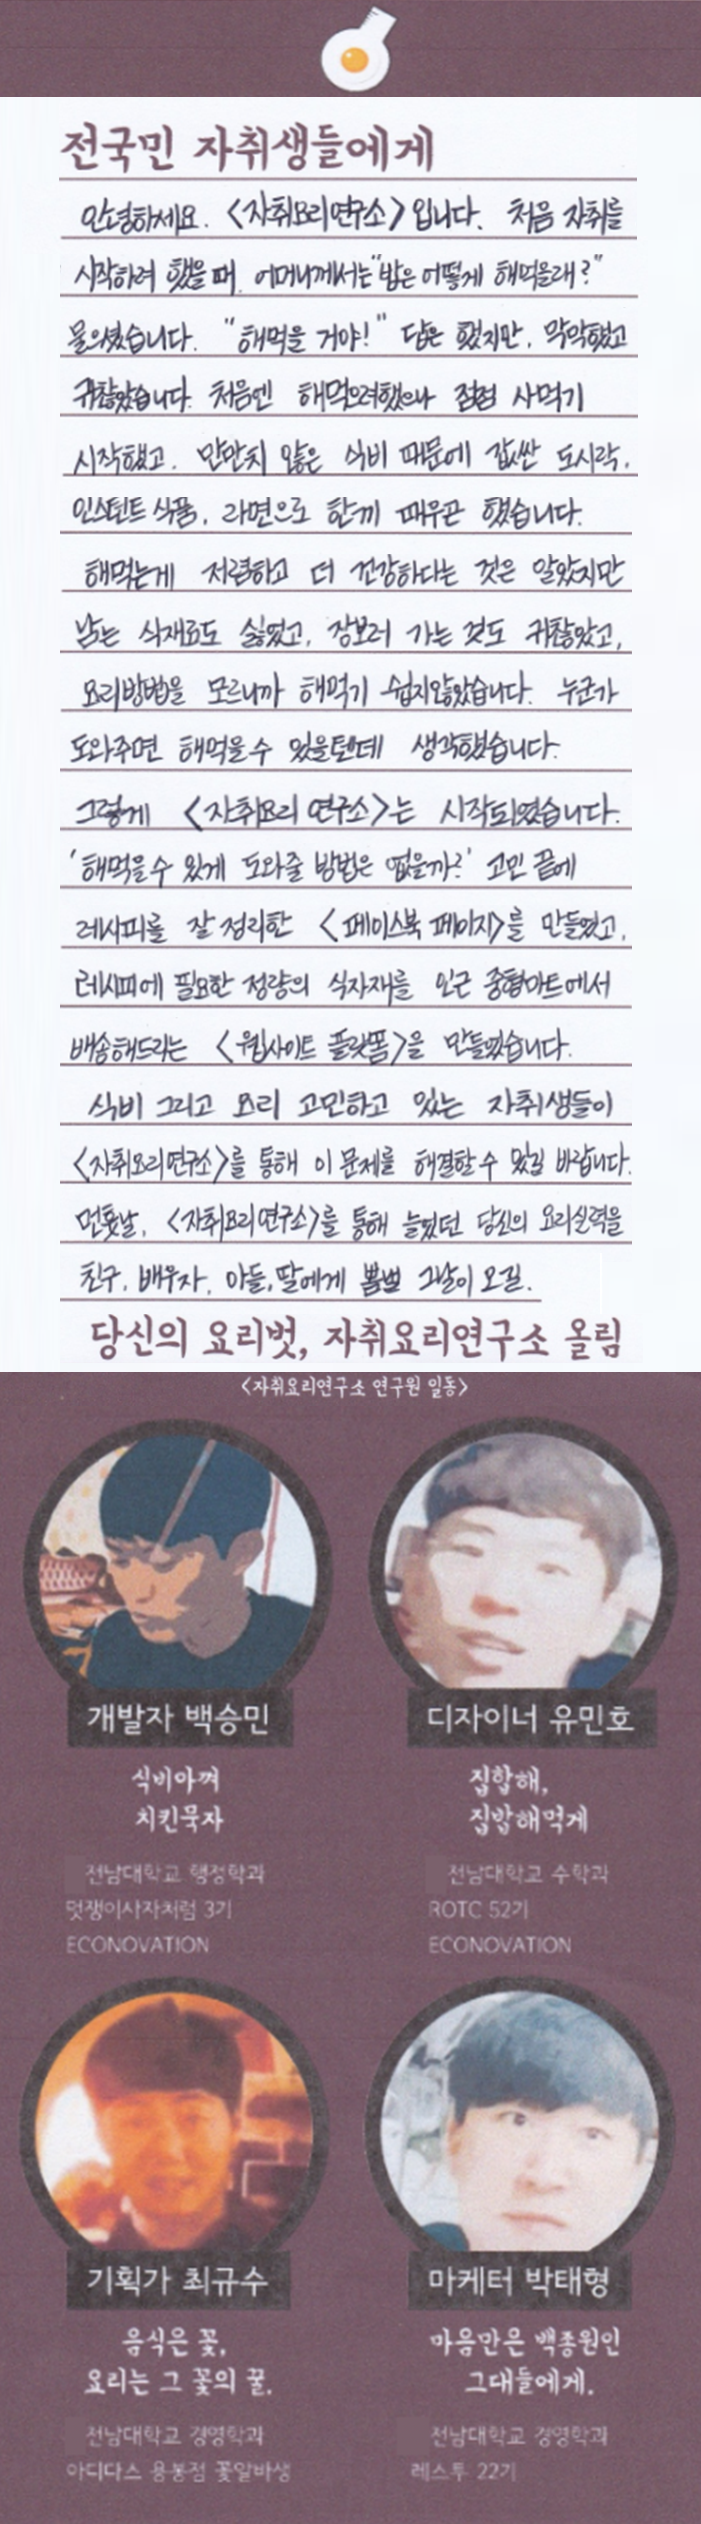 전국민 자취생들에게
안녕하세요. <자취요리연구소>입니다. 처음 자취를
시작하려 했을 때, 어머니께서는 "밥은 어떻게 해먹을래?"
물으셨습니다. "해먹을 거야!" 답은 했지만, 막막했고
귀찮았습니다. 처음엔 해먹으려했으나 점점 사먹기
시작했고, 만만치 않은 식비 때문에 값싼 도시락,
인스턴트 식품, 라면으로 한끼 때우곤 했습니다.
해먹는게 저렴하고 더 건강하다는 것은 알았지만
남는 식재료도 싫었고, 장보러 가는 것도 귀찮았고,
요리방법을 모르니까 해먹기 쉽지않았습니다. 누군가
도와주면 해먹을수 있을텐데 생각했습니다.
그렇게 <자취요리연구소>는 시작되었습니다.
'해먹을수 있게 도와줄 방법은 없을까?' 고민 끝에
레시피를 잘 정리한 <페이스북 페이지>를 만들었고,
레시피에 필요한 정량의 식자재를 인근 중형마트에서
배송해드리는 <웹사이트 플랫폼>을 만들었습니다.
식비 그리고 요리 고민하고 있는 자취생들이
<자취요리연구소>를 통해 이 문제를 해결할수 있길 바랍니다.
먼훗날, <자취요리연구소>를 통해 늘었던 당신의 요리실력을
친구, 배우자, 아들,딸에게 뽐낼 그날이 오길.
당신의 요리벗, 자취요리연구소 올림
<자취요리연구소 연구원 일동>
개발자 백승민
식비아껴
치킨묵자
전남대학교 행정학과
멋쟁이사자처럼 3기
ECONOVATION
디자이너 유민호
집합해,
집밥해먹게
전남대학교 수학과
ROTC 52기
ECONOVATION
기획가 최규수
음식은 꽃,
요리는 그 꽃의 꿀.
전남대학교 경영학과
아디다스 용봉점 꽃알바생
마케터 박태형
마음만은 백종원인
그대들에게.
전남대학교 경영학과
레스투 22기